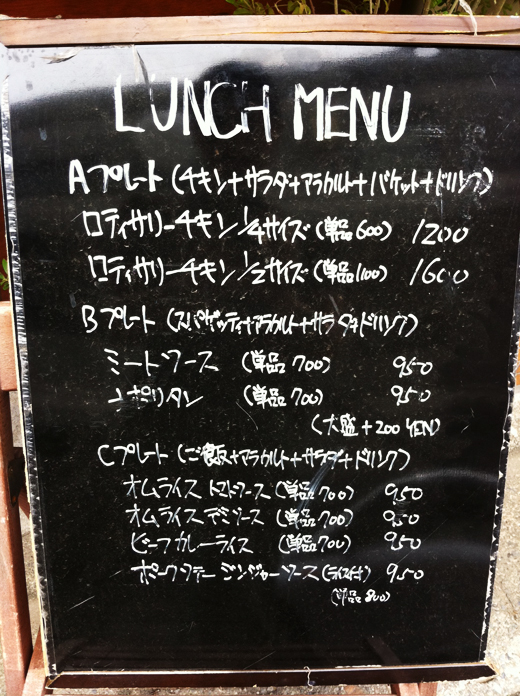 LUNCH MENU
Aプレート(チキン+サラダ+アラカルト+バケット+ドリンク)
ロティサリーチキン1/4サイズ(単品600) 1200
ロティサリーチキン1/2サイズ(単品1100) 1600
Bプレート(スパゲッティ+アラカルト+サラダ+ドリンク)
ミートソース (単品700) 950
ナポリタン (単品700) 950
(大盛+200YEN)
Cプレート(ご飯+アラカルト+サラダ+ドリンク)
オムライストマトソース(単品700) 950
オムライスデミソース(単品700) 950
ビーフカレーライス (単品700) 950
ポークソテージンジャーソース(ライス付) 950
(単品800)